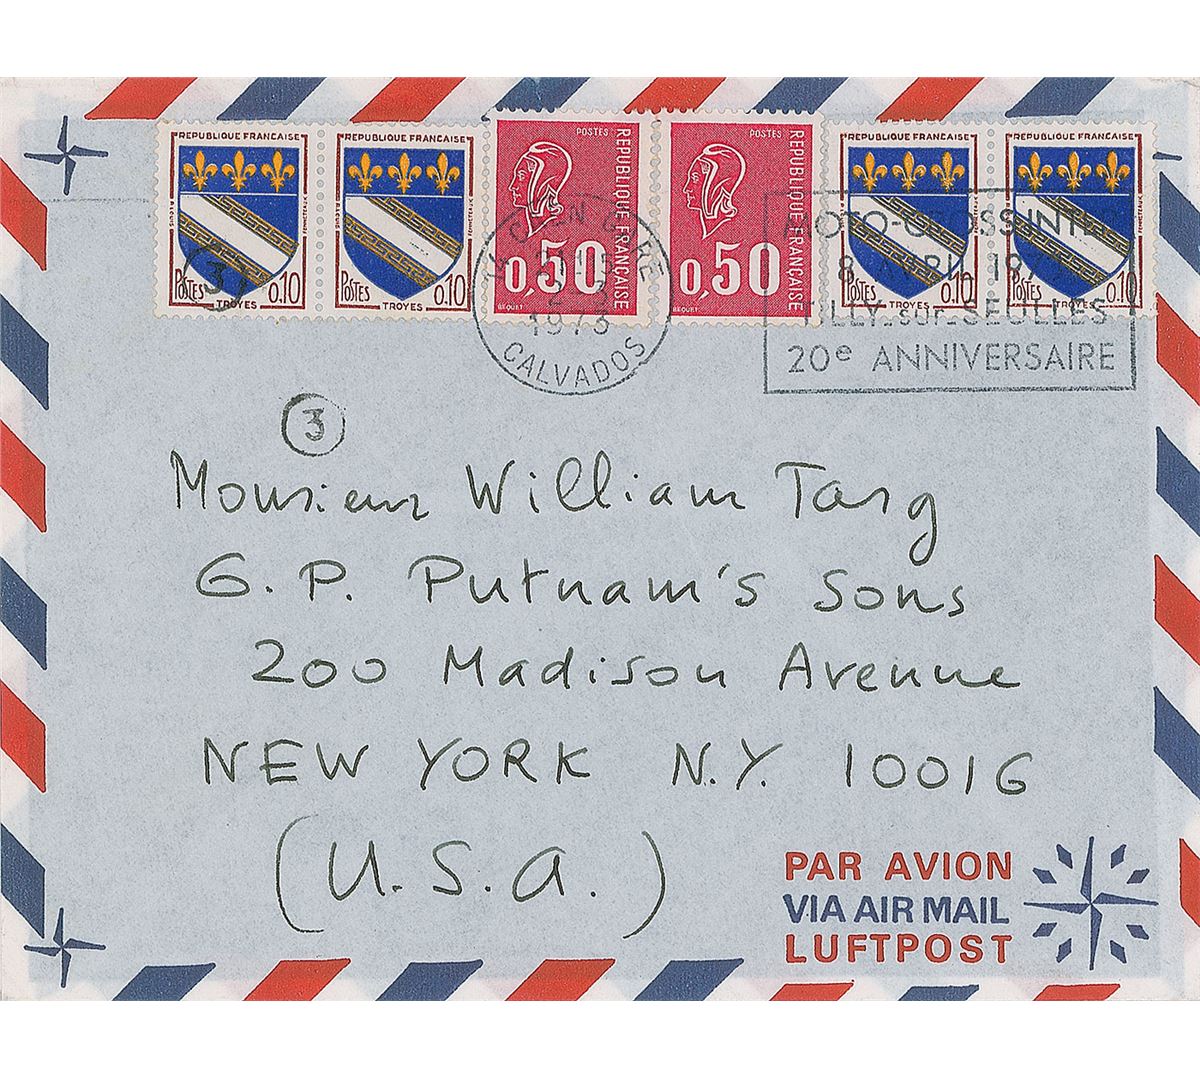 REPUBLIQUE FRANCAISE
POSTES 0.10
TROYES
REPUBLIQUE FRANCAISE
POSTES 0.10
TROYES
POSTES
REPUBLIQUE FRANÇAISE
0,50
BEQUET
POSTES
REPUBLIQUE FRANÇAISE
0,50
BEQUET
REPUBLIQUE FRANCAISE
POSTES 0.10
TROYES
REPUBLIQUE FRANCAISE
POSTES 0.10
TROYES
3
1973
CALVADOS
MOTO-CROSS INTER
8 AVRIL
TILLY-sur-SEULLES
20e ANNIVERSAIRE
3
Monsieur William Targ
G. P. Putnam's Sons
200 Madison Avenue
NEW YORK N.Y. 10016
(U.S.A.)
PAR AVION
VIA AIR MAIL
LUFTPOST